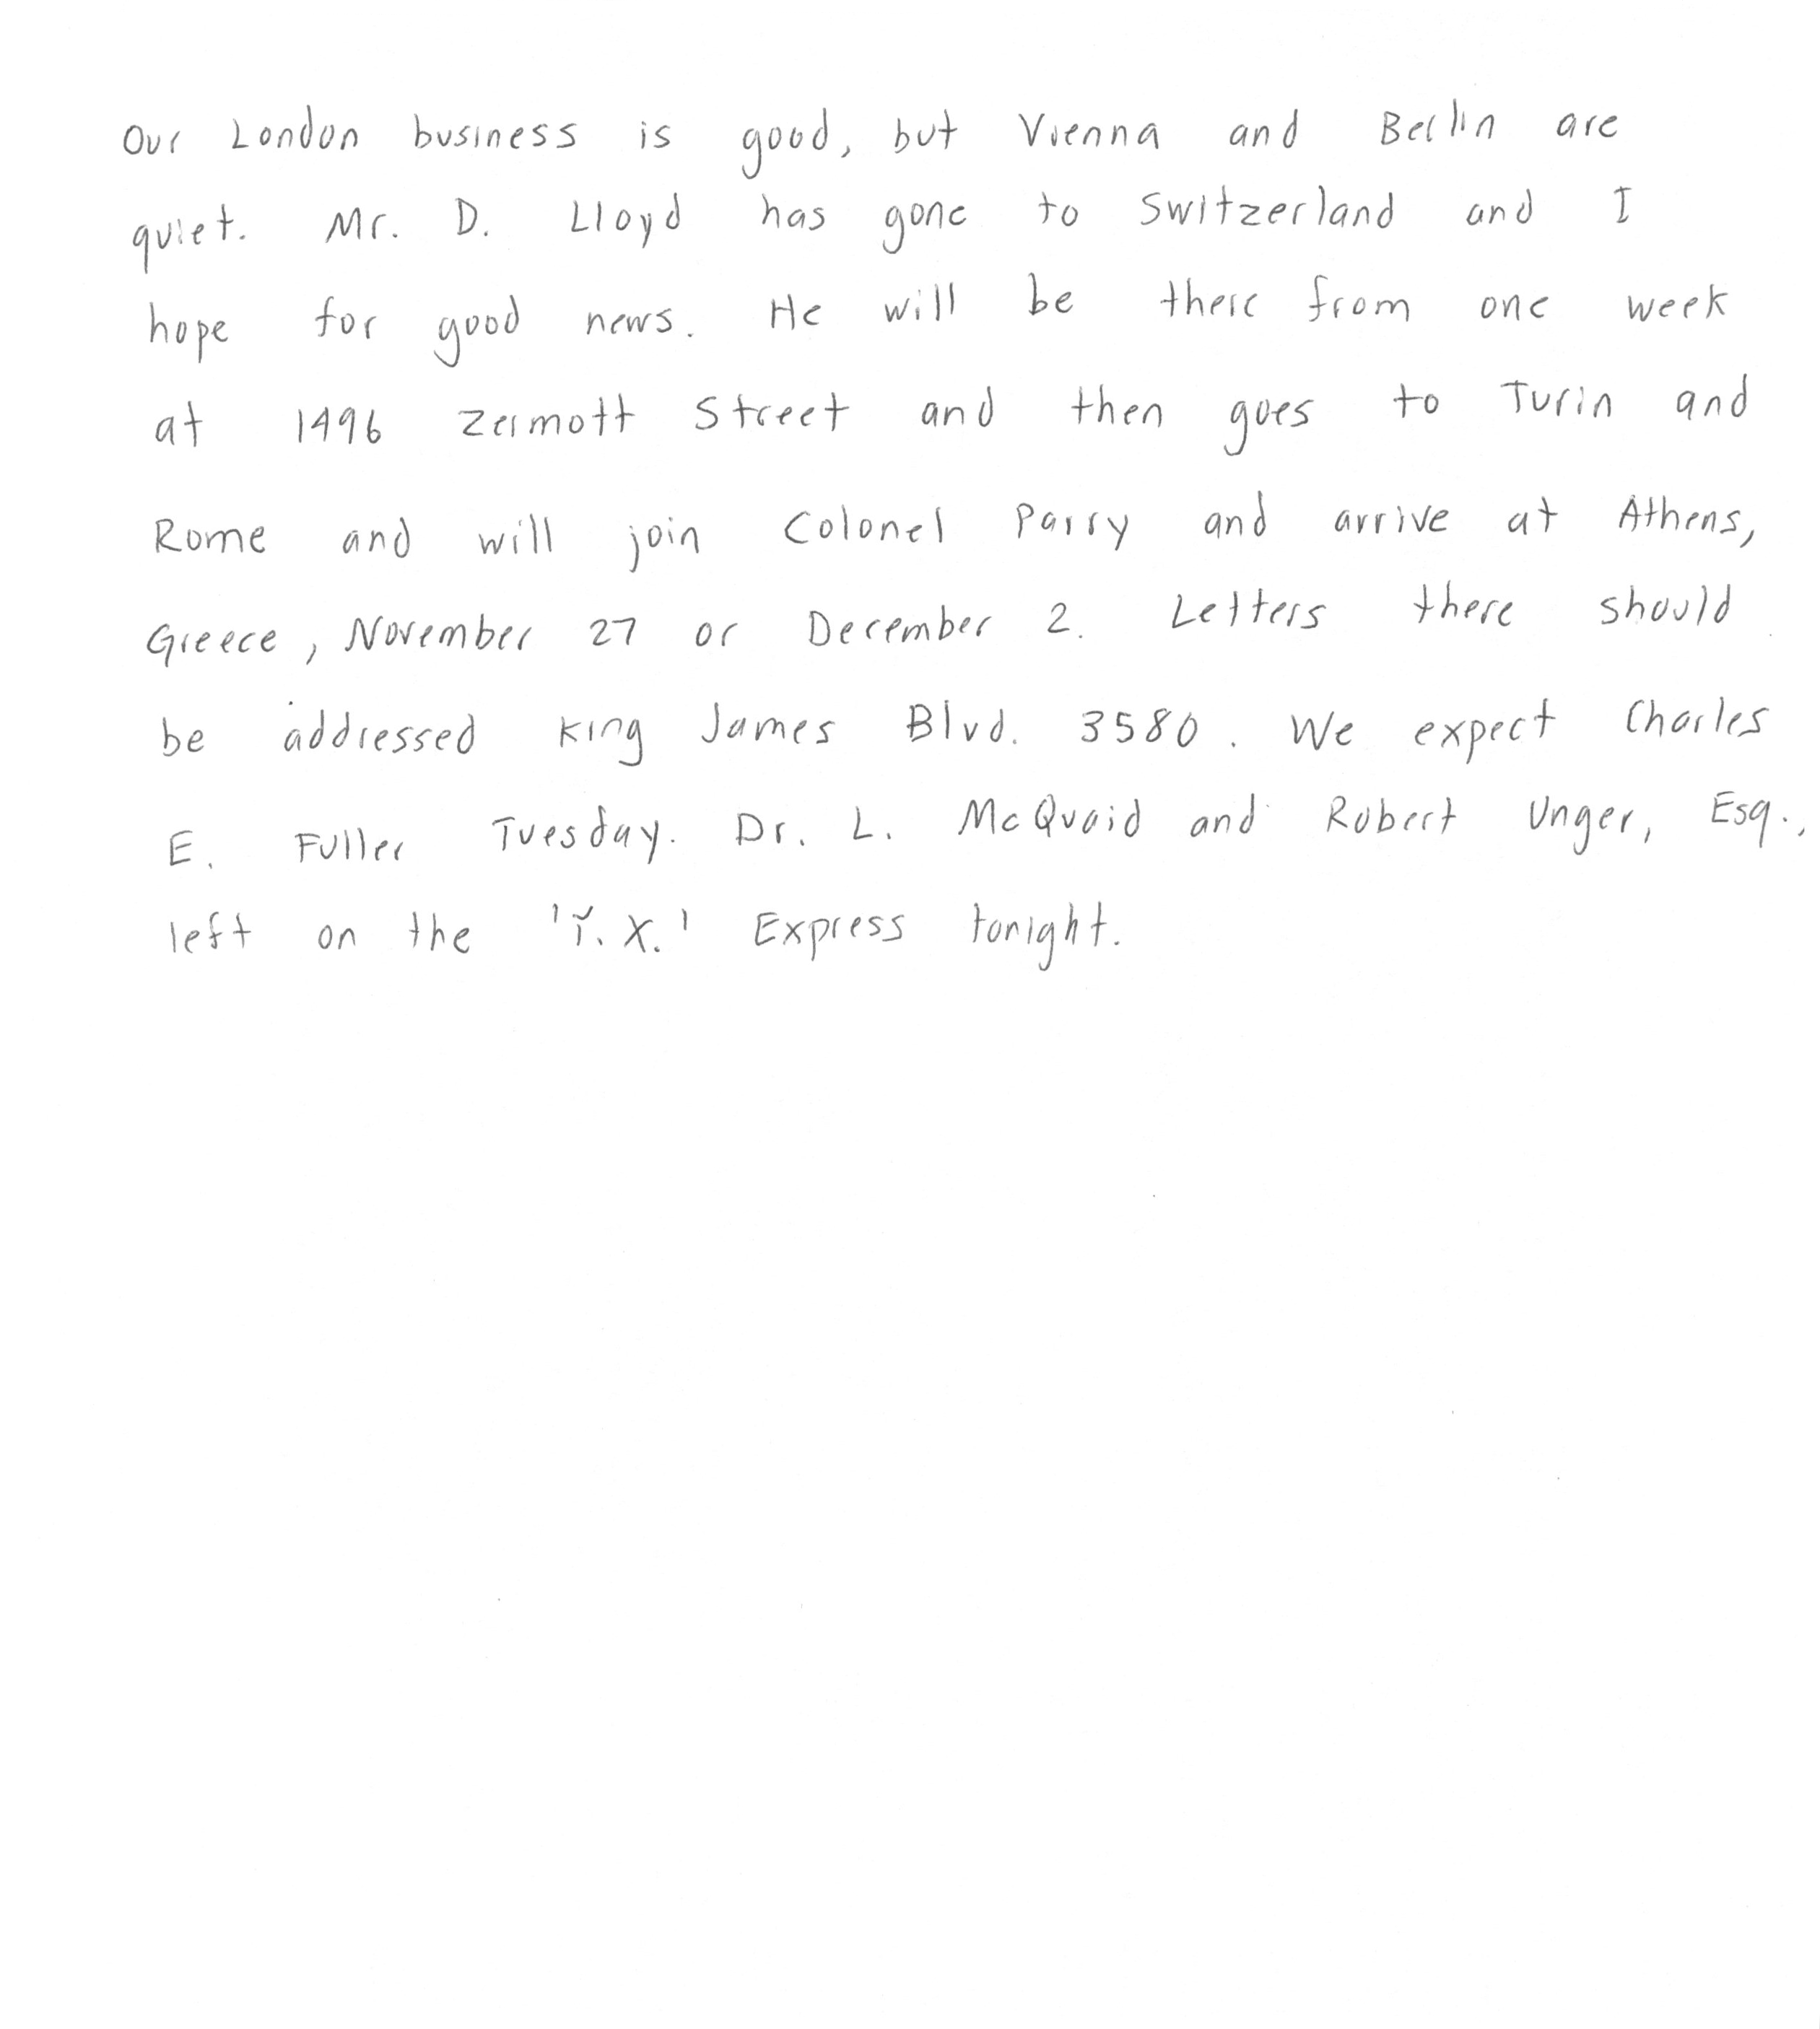 Our London business is good, but Vienna and Berlin are
quiet. Mr. D. Lloyd has gone to Switzerland and I
hope for good news. He will be there from one week
at 1496 Zermott Street and then goes to Turin and
Rome and will join Colonel Parry and arrive at Athens,
Greece, November 27 or December 2. Letters there should
be addressed King James Blvd. 3580. We expect Charles
E. Fuller Tuesday. Dr. L. McQuaid and Robert Unger, Esq.,
left on the 'Y.X.' Express tonight.